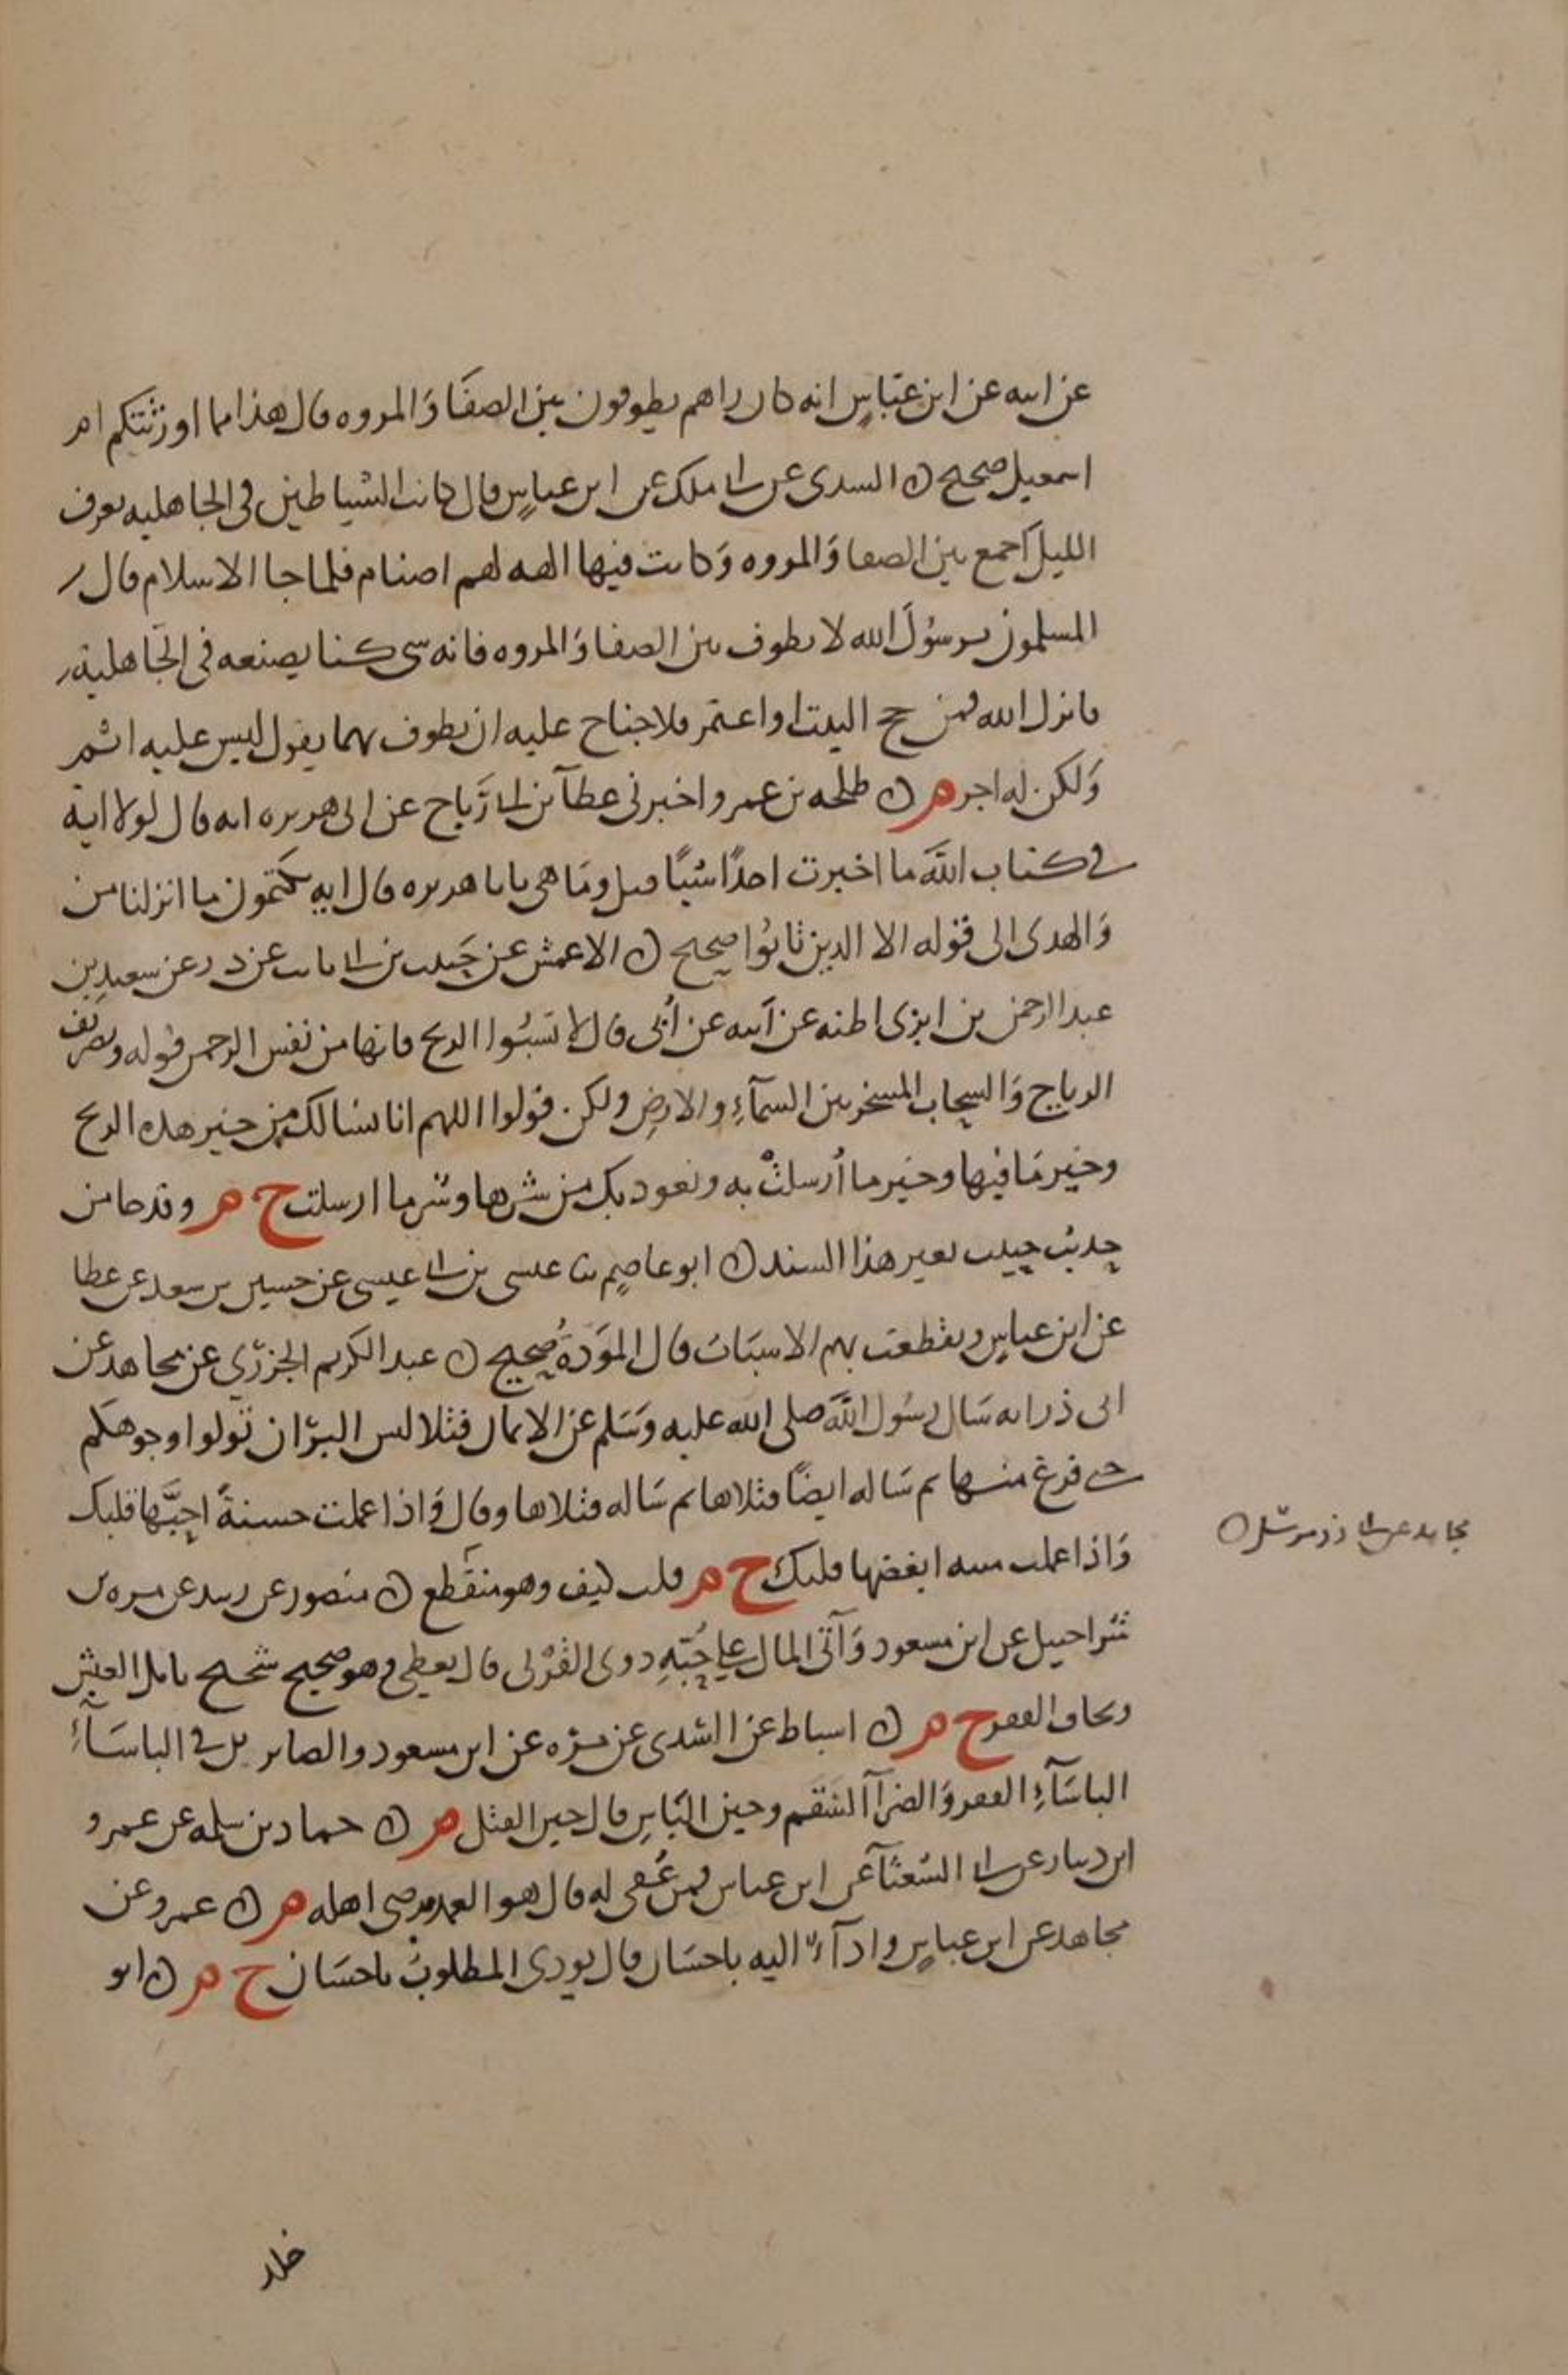 عن ابيه عن ابن عباس انه كان راهم يطوفون بين الصفا وَالمروه قال هذا مما اورثتكم ام
اسمعيل صحيح ن السدى عن ابى ملك عن ابن عباس قال كانت الشياطين فى الجاهليه تعزف
الليل اجمع بين الصفا وَالمروه وَكانت فيها الهه لهم اصنام فلما جا الاسلام قال
المسلمون يرسوُل الله لا نطوف بين الصفا وَالمروه فانه شى كنا نصنعه فى الجَاهلية
فانزل الله فمن حج البيت او اعتمر فلا جناح عليه ان يطوف بهما يقول ليس عليه اثم
وَلكن له اجر م ن طلحه بن عمرو اخبرنى عطآ بن ابى رَباح عن ابى هريره انه قال لولا اية
فى كتاب اللهَ ما اخبرت احدًا شيًا قيل ومَا هى يابا هريره قال ايه يكتمون ما انزلنا من
وَالهدى الى قوله الا الذين تابُوا صحيح ن الاعمش عن حَبيب بن ابى ثابت عن ذر عن سعيد بن
عبد الرحمن بن ابزى اظنه عن اَبيه عن اُبى قال لا تسبُوا الريح فانها من نفس الرحمن قوله وتصريف
الرياح وَالسحاب المسخر بين السمآءِ والارضِ ولكن قولوا اللهم انا نسالك من خير هذه الريح
وخير مَا فيها وخير ما اُرسلتْ به ونعوذ بك من شرها وشر ما ارسلت خ م وقد جا من
حديث حبيب بغير هذا السند ن ابو عاصم ثنا عيسى بن ابى عيسى عن حسين بن سعد عن عطا
عن ابن عباس وتقطعت بهم الاسبَاب قال الموَدةُ صحيح ن عبد الكريم الجزرى عن مجاهد عن
ابى ذر انه سَال رسُول اللهَ صلى الله عليه وَسَلم عن الايمان فتلا ليس البرّ ان تولوا وجوهكم
حتى فرغ منها ثم سَاله ايضًا فتلاها ثم سَاله فتلاها وقال وَاذا عملت حسنةً احبَّها قلبك
وَاذا عملت سيه ابغضها قلبك خ م قلت كيف وهو منقطع ن منصور عن زبيد عن مره بن
شراحيل عن ابن مسعود وَآتَى المال على حُبّهِ ذوى القُرْبى قال يعطى وهو صحيح شحيح يامل العيش
ويخاف الفقر خ م ن اسباط عن السُّدى عن مرّه عن ابن مسعود والصابرين فى الباسَآءِ
الباسَآءِ الفقر وَالضرآ السَقم وحين البَاسِ قال حين القتل م ن حماد بن سلمه عن عمرو
ابن دينار عن ابى الشعثآ عن ابن عباس فمن عُفى له قال هو العمد يرضى اهله م ن عمرو عن
مجاهد عن ابن عباس وادآءٌ اليه باحسَان قال يودى المطلوبُ باحسَان خ م ن ابو
مجاهد عن ابى ذر مرسل ن
خلد